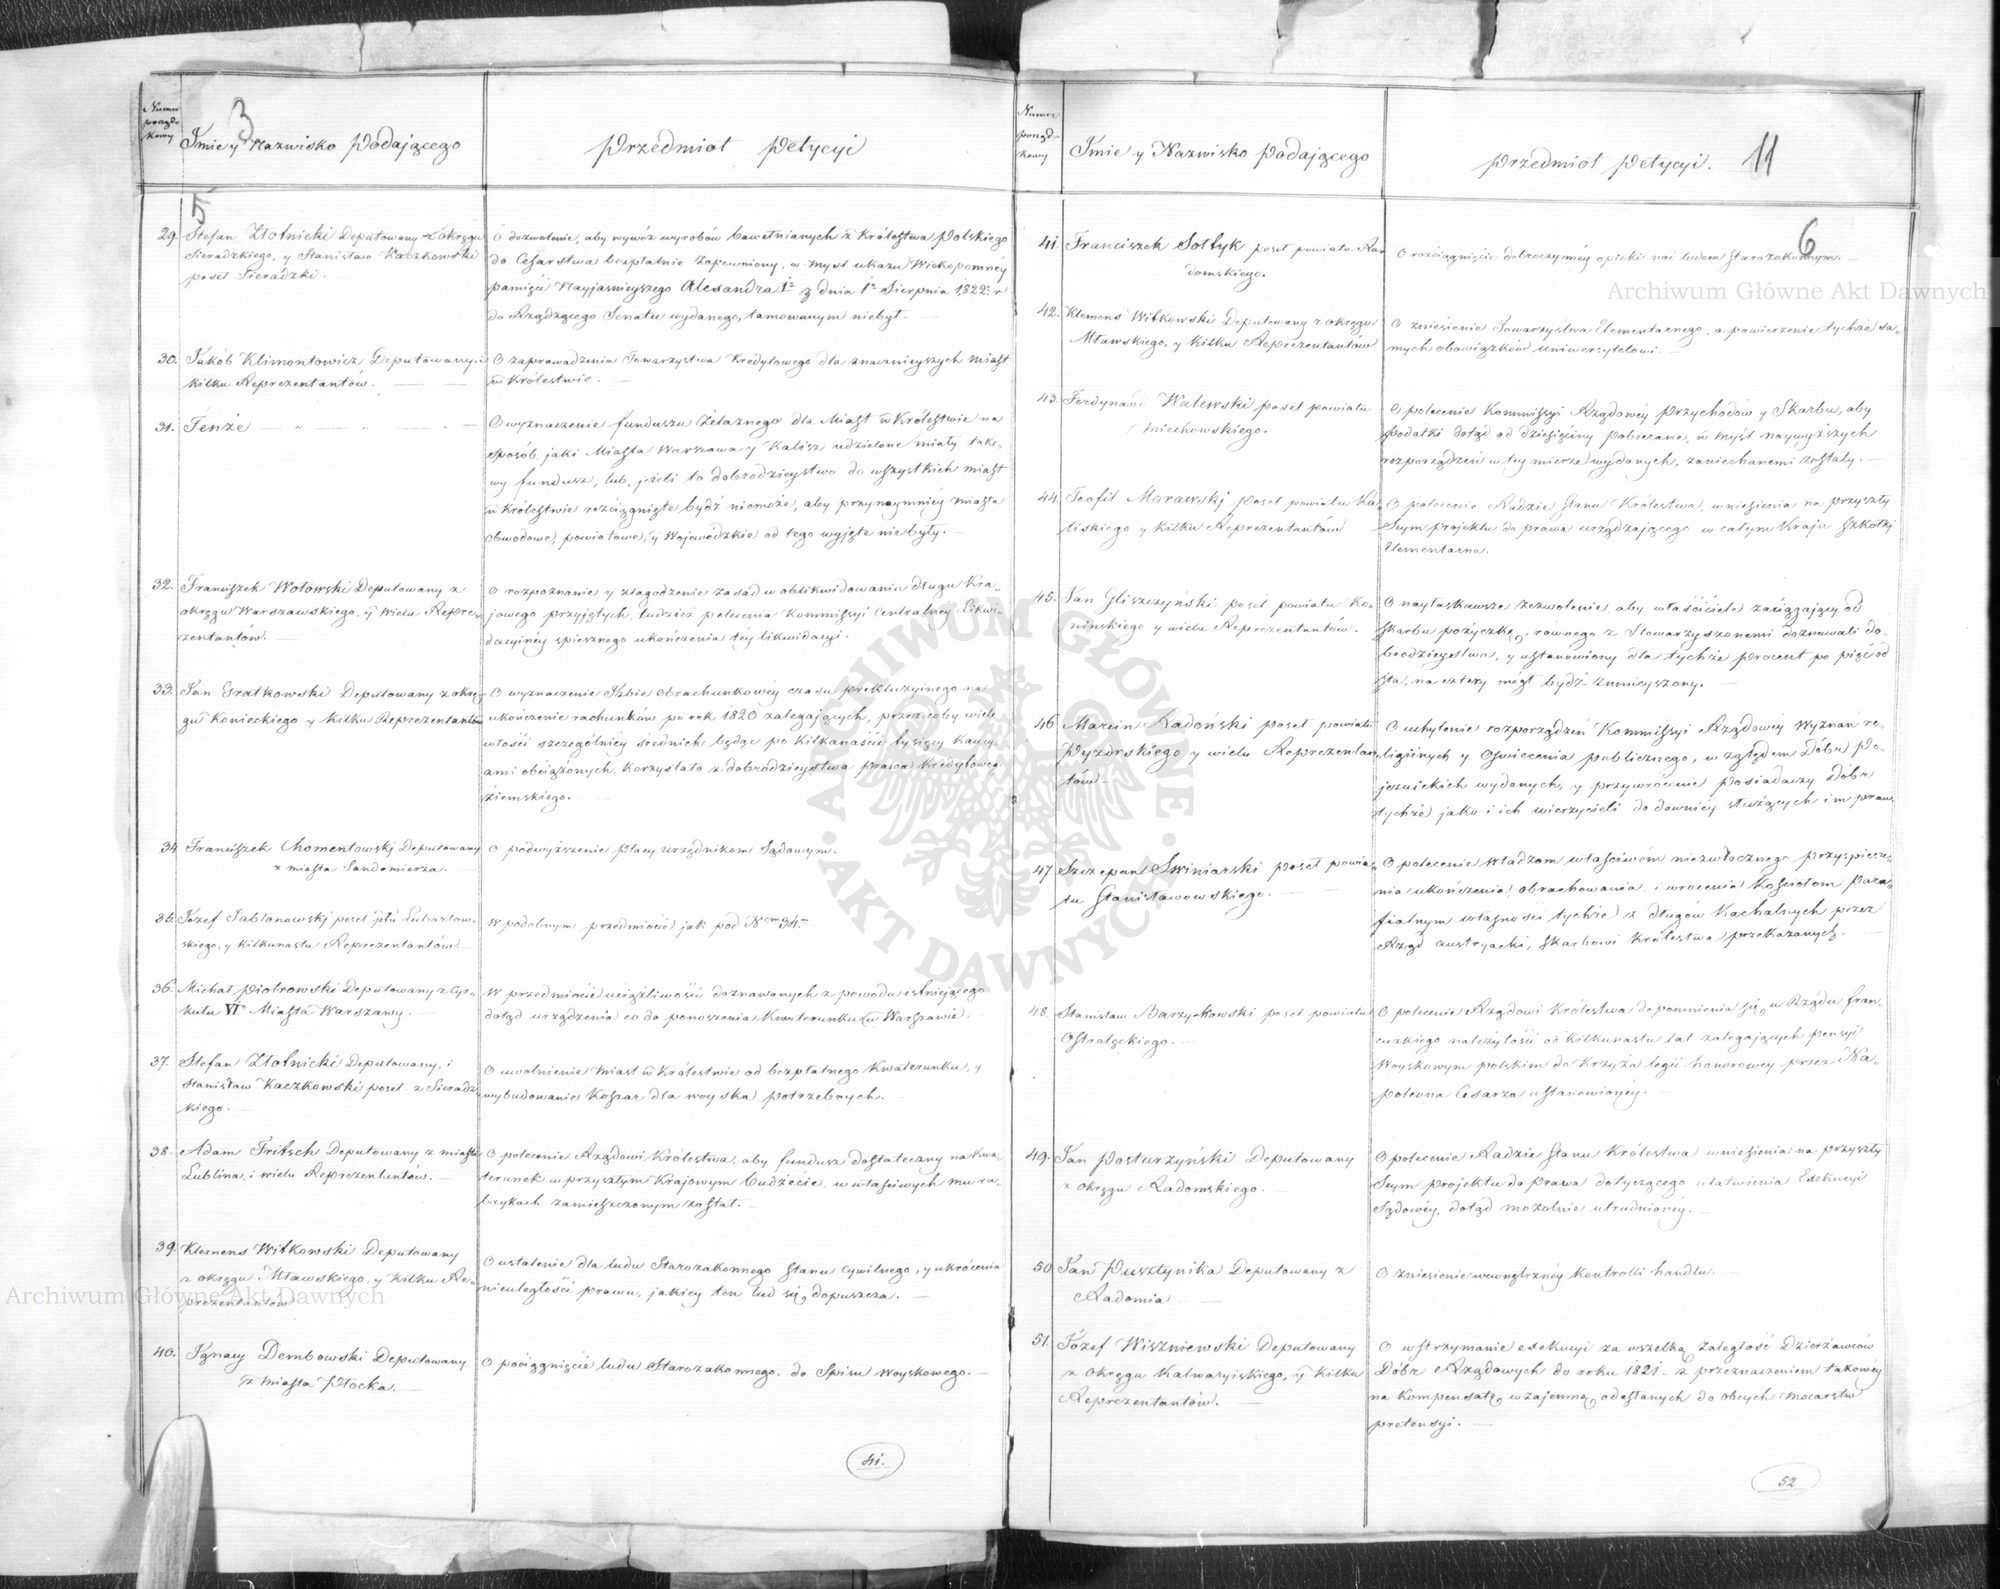 Numer
porząd-
kowy
3
Imie y Nazwisko Podaiącego
Przedmiot Petycyi
5
29. Stefan Złotnicki Deputowany z okręgu
Sieradzkiego, y Stanisław Kaczkowski
poseł Sieradzki. —
O dozwolenie, aby wywóz wyrobów bawełnianych z Królestwa Polskiego
do Cesarstwa bezpłatnie zapewniony, w myśl ukazu Wiekopomnéy
pamięci Nayjaśnieyszego Alexandra I° z dnia 1° Sierpnia 1822° r
do Rządzącego Senatu wydanego, tamowanym niebył. —
30. Jakób Klimontowicz Deputowany i
kilku Reprezentantów. —
O zaprowadzenia Towarzystwa Kredytowego dla znacznieyszych miast
w Królestwie. —
31. Tenże — " — " —
O wyznaczenie funduszu Żelaznego dla Miast w Królestwie na
sposób, jaki Miasta Warszawa y Kalisz udzielone miały tako-
wy fundusz, lub, jeżeli to dobrodzieystwo do wszystkich miast
w Królestwie rozciągnięte bydź niemoże, aby przynaymniéy miasta
obwodowe, powiatowe, y Wojewódzkie od tego wyjęte nie były. —
32. Franciszek Wołowski Deputowany z
okręgu Warszawskiego, y wielu Repre-
zentantów. —
O rozpoznanie y złagodzenie zasad w oblikwidowaniu długu Kra-
jowego przyjętych, tudzież polecenia Kommissyi Centralnéy Likwi-
dacyinéy spiesznego ukończenia téy likwidacyi. —
33. Jan Gratkowski Deputowany z okrę-
gu Konieckiego y kilku Reprezentantów
O wyznaczenie Izbie Obrachunkowéy czasu prekluzyinego na
ukończenie rachunków po rok 1820 zalegających, przez coby wiele
włości szczególniéy średnich będąc po kilkanaście tysięcy kaucy-
ami obciążonych, korzystało z dobrodzieystwa prawa Kredytowego
ziemskiego. —
34 Franciszek Chomentowski Deputowany
z miasta Sandomierza. —
O podwyższenie płacy urzędnikom Sądowym. —
35. Józef Jabłonowski poseł płu Lubartow-
skiego, y kilkunastu Reprezentantów —
W podobnym przedmiocie jak pod Nrem 34.
36. Michał Piotrowski Deputowany z Cyr-
kułu VI° Miasta Warszawy. —
W przedmiocie uciążliwości doznawanych z powodu istniejącego
dotąd urządzenia co do ponoszenia Kwaterunku w Warszawie. —
37. Stefan Złotnicki Deputowany, i
Stanisław Kaczkowski poseł z Sieradz-
kiego. —
O uwolnienie Miast w Królestwie od bezpłatnego Kwaterunku, y
wybudowanie Koszar dla woyska potrzebnych. —
38. Adam Fritsch Deputowany z miasta
Lublina, i wielu Reprezentantów. —
O polecenie Rządowi Królestwa, aby fundusz dostateczny na Kwa-
terunek w przyszłym Krajowym budżecie, w właściwych mu ru-
brykach zamieszczonym został. —
39. Klemens Witkowski Deputowany
z okręgu Mławskiego, y kilku Re-
prezentantów
O ustalenie dla ludu Starozakonnego Stanu cywilnego, y ukrócenia
nieuległości prawu, jakiey ten lud się dopuszcza. —
40. Ignacy Dembowski Deputowany
z Miasta Płocka. —
O pociągnięcie ludu Starozakonnego, do Spisu Woyskowego. —
41.
Numer
porząd-
kowy
Imie y Nazwisko Podaiącego
Przedmiot Petycyi.
11
6
41. Franciszek Sołtyk poseł powiatu Ra-
domskiego.
O rozciągnięcie dobroczynnéy opieki nad ludem Starozakonnym. —
42. Klemens Witkowski Deputowany z okręgu
Mławskiego, y kilku Reprezentantów
O zniesienie Towarzystwa Elementarnego, a powierzenie tychże sa-
mych obowiązków uniwersytetowi. —
43. Ferdynand Walewski poseł powiatu
Miechowskiego.
O polecenie Kommissyi Rządowéy Przychodów y Skarbu, aby
podatki dotąd od dziesięciny pobierane, w myśl naywyższych
rozporządzeń w tey mierze wydanych, zaniechanemi zostały. —
44. Teofil Morawski poseł powiatu Ka-
liskiego y kilku Reprezentantów
O polecenie Radzie Stanu Królestwa, wniesienia na przyszły
Seym projektu do prawa urządzającego w całym Kraju Szkółki
Elementarne. —
45. Jan Gliszczyński poseł powiatu Ko-
nińskiego y wielu Reprezentantów. —
O nayłaskawsze zezwolenie, aby właściciele zaciągający od
skarbu pożyczkę, równego z Stowarzyszonemi doznawali do-
brodzieystwa, y ustanowiony dla tychże procent po pięć od
sta, na cztery mógł bydź zmnieyszony. —
46 Marcin Radoński poseł powiatu
Pyzdrskiego y wielu Reprezentan-
tów —
O uchylenie rozporządzeń Kommissyi Rządowéy Wyznań re-
ligiinych y Oświecenia publicznego, w względem Dóbr Po-
jezuickich wydanych, y przywrócenie Posiadaczy Dóbr
tychże jako i ich wierzycieli do dawniéy służących im praw
47. Szczepan Swiniarski poseł powia-
tu Stanisławowskiego. —
O polecenie władzom właściwym niezwłocznego przyspiesze-
nia ukończenia obrachowania i wrócenia Kościołom Para-
fialnym własności tychże z długów Kachalnych przez
Rząd austryacki, skarbowi Królestwa przekazanych. —
48. Stanisław Barzykowski poseł powiatu
Ostrołęckiego. —
O polecenie Rządowi Królestwa dopomnienia się u Rządu fran-
cuzkiego należytości od kilkunastu lat zalegających pensyi
Woyskowym polskim do Krzyża legii honorowey przez Na-
poleona Cesarza ustanowionéy. —
49. Jan Posturzyński Deputowany
z okręgu Radomskiego. —
O polecenie Radzie Stanu Królestwa wniesienia na przyszły
Seym projektu do prawa dotyczącego ułatwienia Exekucyi
Sądowéy, dotąd mozolnie utrudnionéy. —
50 Jan Pusztynika Deputowany z
Radomia —
O zniesienie wewnętrznéy Kontrolli handlu. —
51. Józef Wiszniewski Deputowany
z Okręgu Kalwaryiskiego, y kilku
Reprezentantów. —
O wstrzymanie exekucyi za wszelką zaległość Dzierżawców
Dóbr Rządowych do roku 1821 — z przeznaczeniem takowéy
na kompensatę wzajemną odesłanych do obcych Mocarstw
pretensyi. —
52
Archiwum Główne Akt Dawnych
Archiwum Główne Akt Dawnych
ARCHIWUM GŁÓWNE · AKT DAWNYCH ·